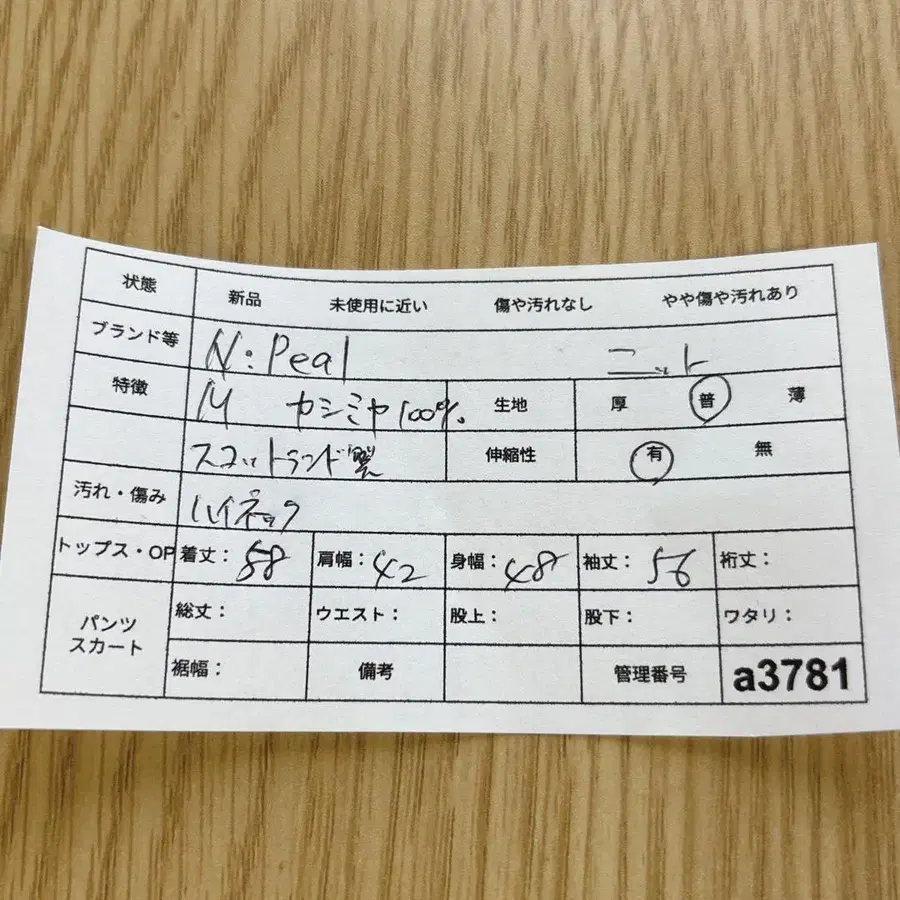 状態 新品 未使用に近い 傷や汚れなし やや傷や汚れあり
ブランド等 N:Peal ニット
特徴 M カシミヤ100%. 生地 厚 普 薄
スコットランド製 伸縮性 有 無
汚れ・傷み ハイネック
トップス・OP 着丈：58 肩幅：42 身幅：48 袖丈：56 裄丈：
パンツ スカート 総丈： ウエスト： 股上： 股下： ワタリ：
裾幅： 備考 管理番号 a3781